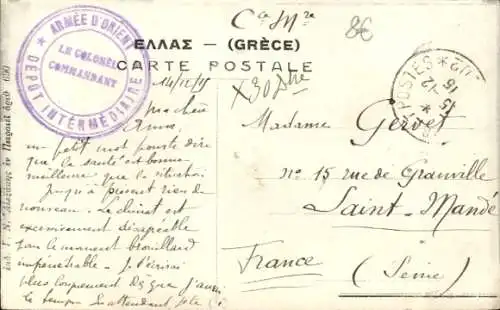 Cᵃ Mʳᵉ
8€
ARMÉE D'ORIENT
LE COLONEL
COMMANDANT
DÉPÔT INTERMÉDIAIRE
ΕΛΛΑΣ – (GRÈCE)
CARTE POSTALE
14/12/15
ma chère
Anna,
un petit mot pour te dire
que la santé est bonne
meilleure que la situation
jusqu'à présent rien de
nouveau. Le climat est
excessivement désagréable
pour le moment brouillard
impénétrable – J. t'écrirai
plus longuement dès que j'aurai
le temps En attendant
X 30
POSTES
15
12
15
Madame Gervet
nº 15 rue de Granville
Saint-Mandé
(Seine)
France